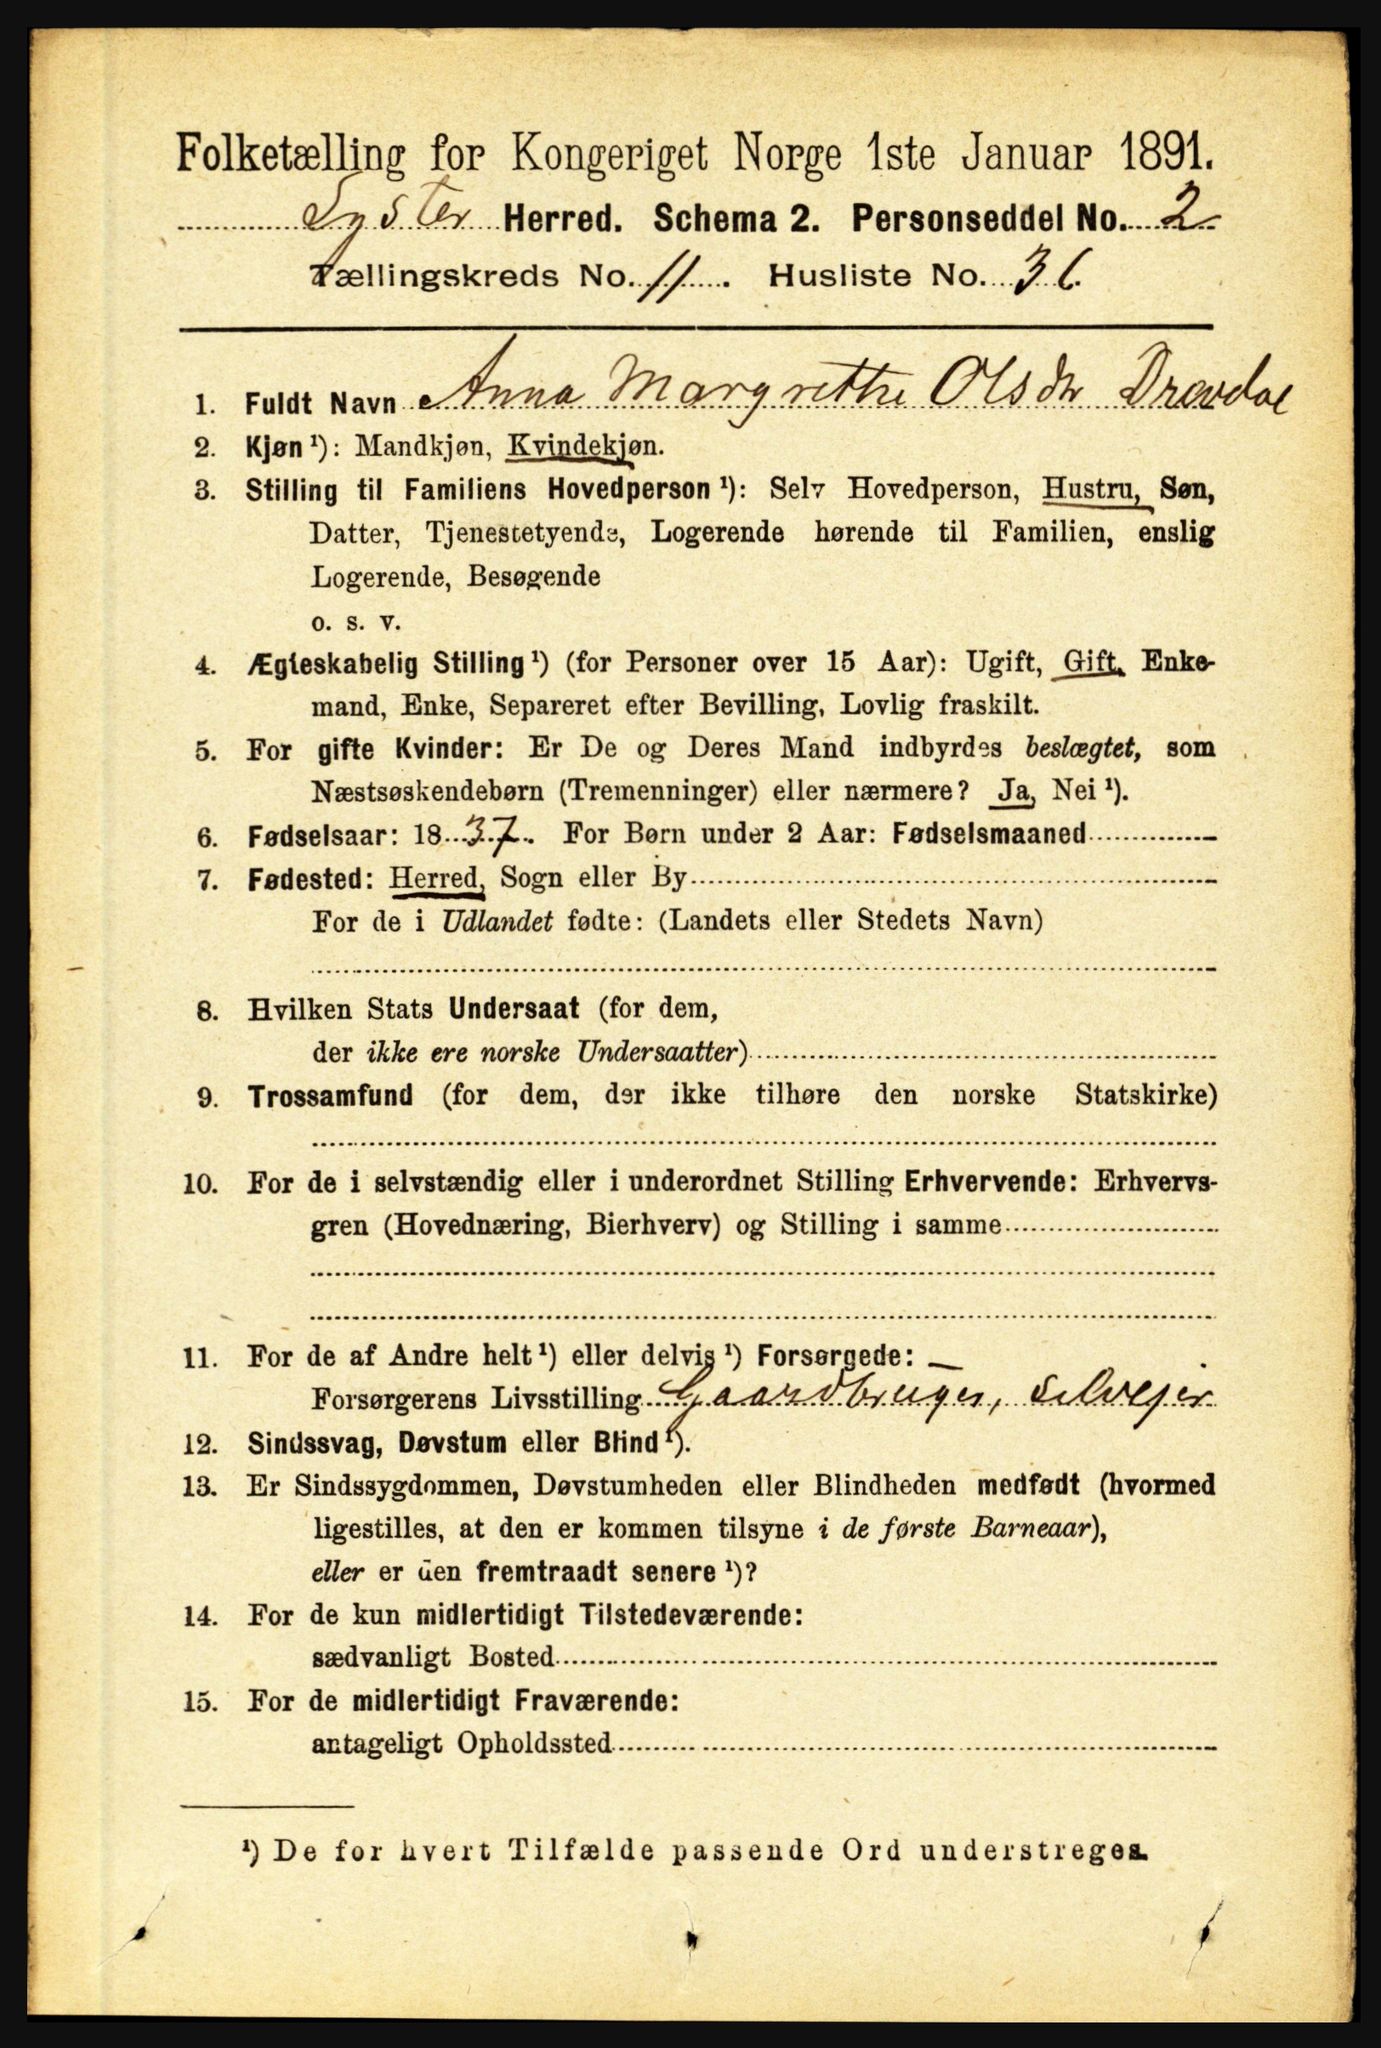 Folketælling for Kongeriget Norge 1ste Januar 1891.
Lyster Herred. Schema 2. Personseddel No. 2
Tællingskreds No. 11. Husliste No. 36.
1. Fuldt Navn Anna Margrethe Olsdr Drevdal
2. Kjøn ¹): Mandkjøn, Kvindekjøn.
3. Stilling til Familiens Hovedperson ¹): Selv Hovedperson, Hustru, Søn,
Datter, Tjenestetyende, Logerende hørende til Familien, enslig
Logerende, Besøgende
o. s. v.
4. Ægteskabelig Stilling ¹) (for Personer over 15 Aar): Ugift, Gift, Enke-
mand, Enke, Separeret efter Bevilling, Lovlig fraskilt.
5. For gifte Kvinder: Er De og Deres Mand indbyrdes beslægtet, som
Næstsøskendebørn (Tremenninger) eller nærmere? Ja, Nei ¹).
6. Fødselsaar: 1837. For Børn under 2 Aar: Fødselsmaaned
7. Fødested: Herred, Sogn eller By
For de i Udlandet fødte: (Landets eller Stedets Navn)
8. Hvilken Stats Undersaat (for dem,
der ikke ere norske Undersaatter)
9. Trossamfund (for dem, der ikke tilhøre den norske Statskirke)
10. For de i selvstændig eller i underordnet Stilling Erhvervende: Erhvervs-
gren (Hovednæring, Bierhverv) og Stilling i samme
11. For de af Andre helt ¹) eller delvis ¹) Forsørgede: —
Forsørgerens Livsstilling Gaardbruger, Selveier
12. Sindssvag, Døvstum eller Blind ¹).
13. Er Sindssygdommen, Døvstumheden eller Blindheden medfødt (hvormed
ligestilles, at den er kommen tilsyne i de første Barneaar),
eller er den fremtraadt senere ¹)?
14. For de kun midlertidigt Tilstedeværende:
sædvanligt Bosted
15. For de midlertidigt Fraværende:
antageligt Opholdssted
¹) De for hvert Tilfælde passende Ord understreges.